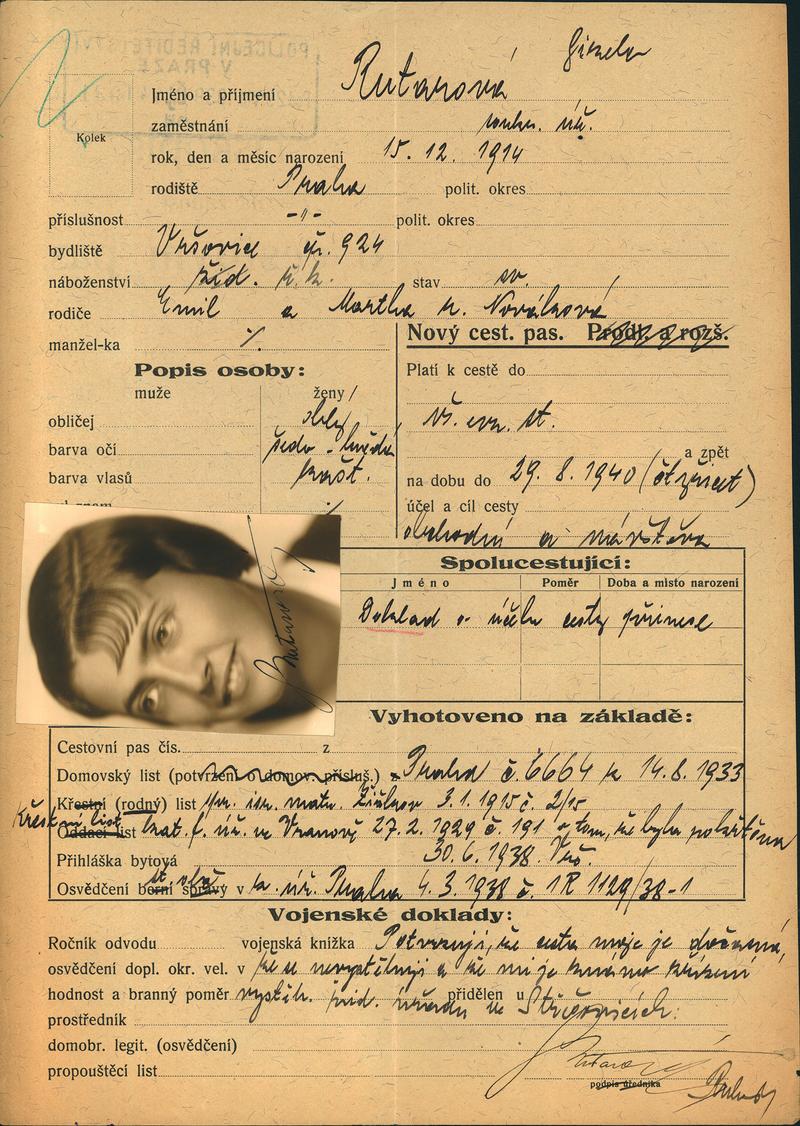 POLICEJNÍ ŘEDITELSTVÍ
V PRAZE
Gisela
Jméno a příjmení Rutarová
Kolek
zaměstnání soukr. úř.
rok, den a měsíc narození 15. 12. 1914
rodiště Praha polit. okres
příslušnost -"- polit. okres
bydliště Vršovice čp. 924
náboženství žid. ř.k. stav sv.
rodiče Emil a Martha r. Nováková
manžel-ka %.
Nový cest. pas. Prodl. a rozš.
Popis osoby:
muže ženy
Platí k cestě do
obličej obly
vš. evr. st.
barva očí šedo-hnědé
a zpět
barva vlasů kašt.
na dobu do 29. 8. 1940 (čtyřicet)
účel a cíl cesty
obchodní a návštěva
Spolucestující:
Jméno Poměr Doba a místo narození
Doklad o účelu cesty přinese
Rutarová
Vyhotoveno na základě:
Cestovní pas čís. z
Domovský list (potvrzení o domov. přísluš.) Praha č. 6664 14.8.1933
Křestní (rodný) list isr. matr. Žižkov 3.1.1915 č. 2/15
Křestní list
Oddací list kat. f. úř. ve Vranově 27.2.1929 č. 191 o tom, že byla pokřtěna
Přihláška bytová 30.6.1938. Vrš.
Osvědčení berní správy v úř. Praha 4.3.1938 č. 1R 1129/38-1
Vojenské doklady:
Ročník odvodu vojenská knížka Potvrzuji, že cesta moje je dočasná,
osvědčení dopl. okr. vel. v že se nevystěhuji a že mi je známo zřízení
hodnost a branný poměr vystěh. přid. úřadu ve Střešovicích. přidělen u
prostředník
domobr. legit. (osvědčení)
propouštěcí list
Rutarová
podpis úředníka